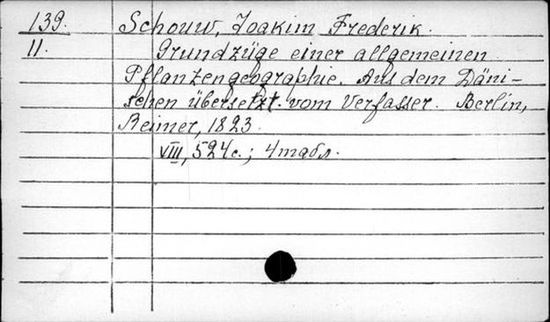 139. Schouw, Joakim Frederik.
11. Grundzüge einer allgemeinen
Pflanzengeographie. Aus dem Däni-
schen übersetzt vom Verfasser. Berlin,
Reimer, 1823.
VIII, 524 с.; 4 табл.